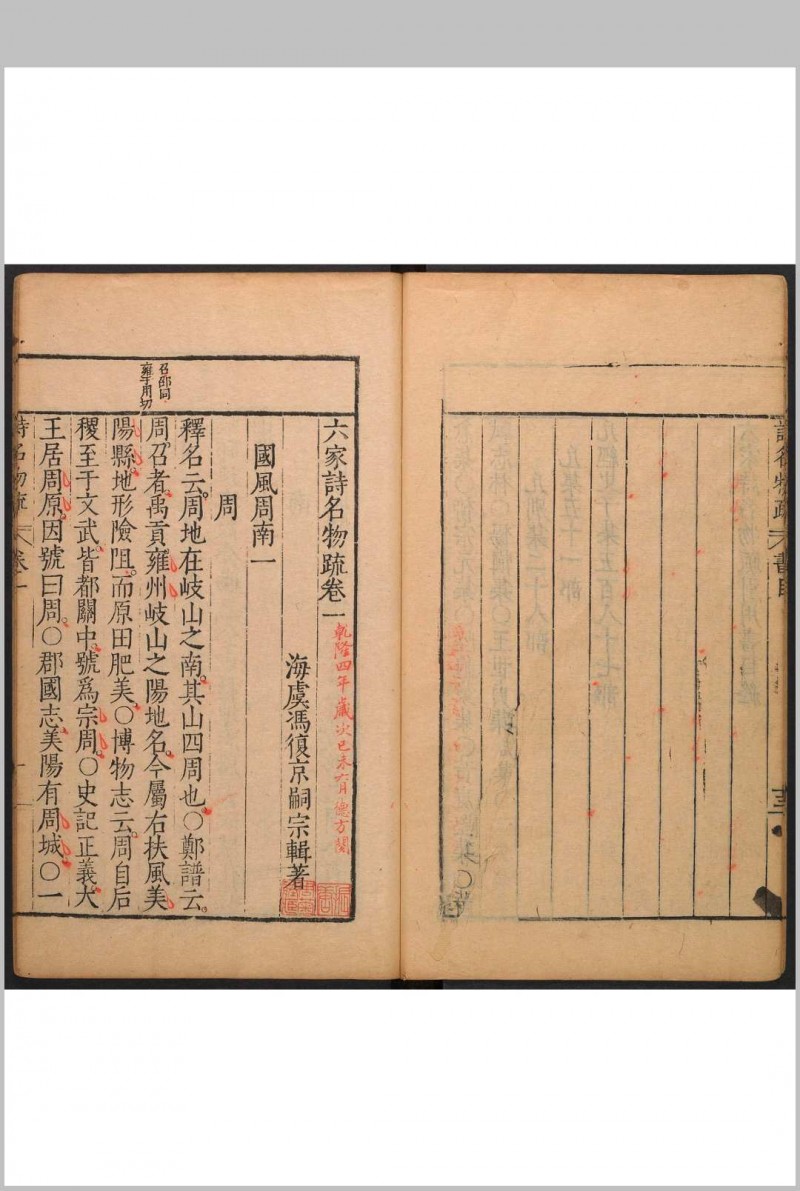 詩名物疏
書目
六家詩名物疏卷一
乾隆四年歲次己未六月德方閱
海虞馮復京嗣宗輯著
國風周南一
周
釋名云周地在岐山之南其山四周也〇鄭譜云
周召者禹貢雍州岐山之陽地名今屬右扶風美
陽縣地形險阻而原田肥美〇博物志云周自后
稷至于文武皆都關中號爲宗周〇史記正義大
王居周原因號曰周〇郡國志美陽有周城〇一
召邵同
雍于用切
詩名物疏
卷一